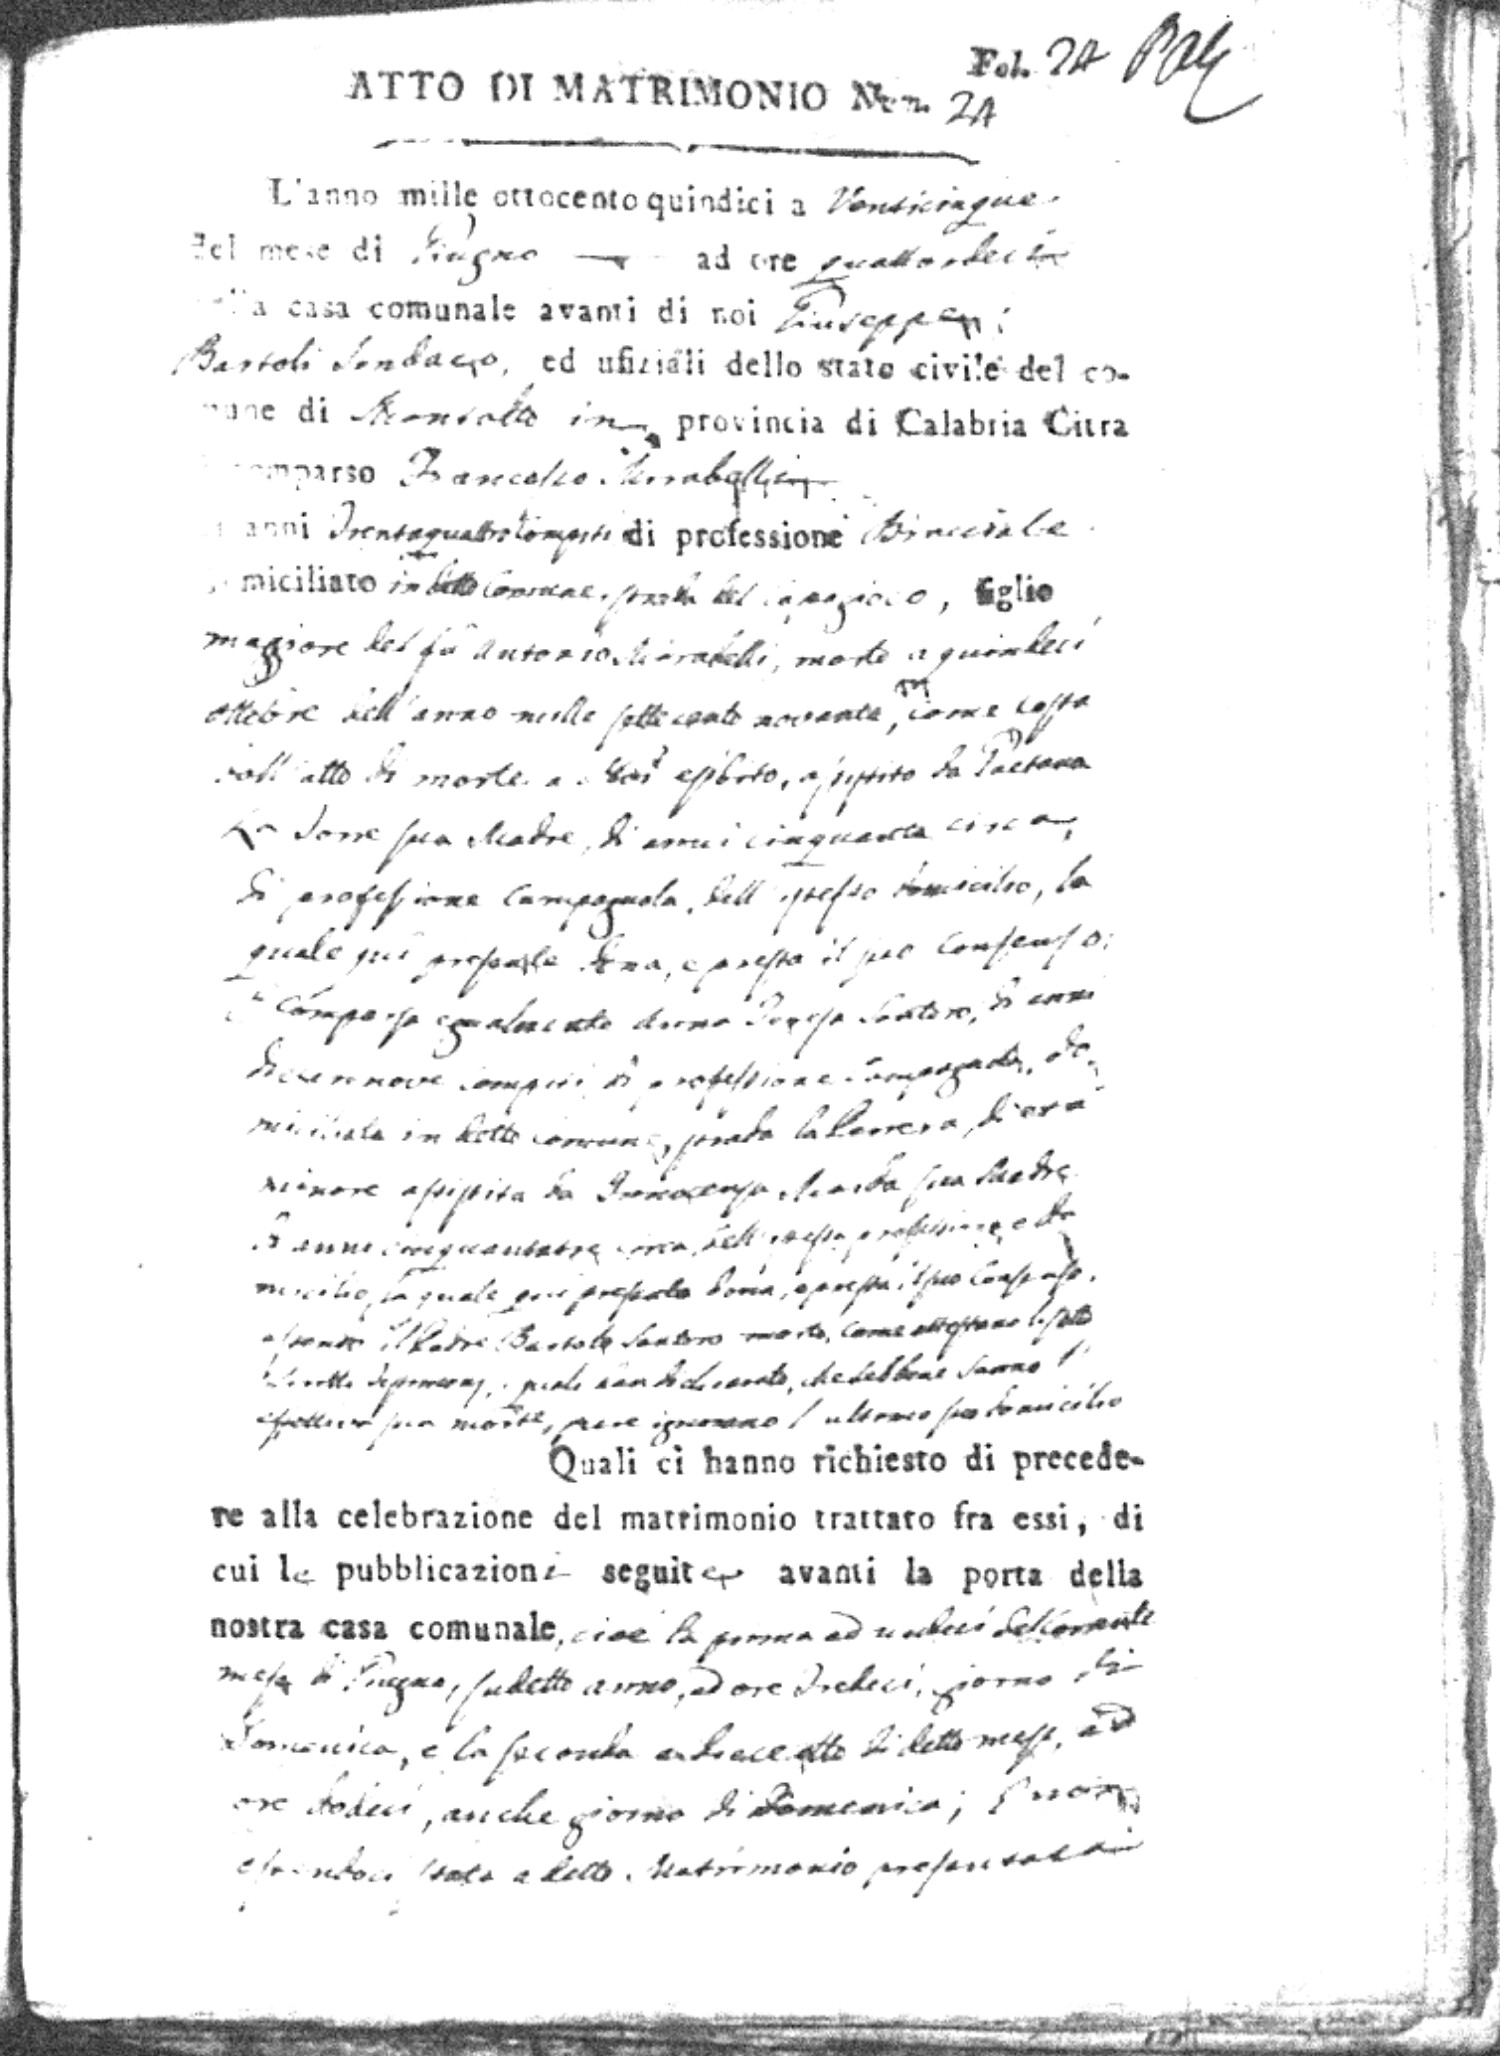 Fol. 24
ATTO DI MATRIMONIO Num. 24
L'anno mille ottocento quindici a Venticinque
del mese di Giugno ad ore quattordeci
casa comunale avanti di noi Giuseppe
Bartoli Sindaco, ed ufiziali dello stato civile del co-
mune di Montalto in provincia di Calabria Citra
comparso Francesco Mirabelli
anni Trentaquattro compiti di professione Bracciale
miciliato in detto Comune, strada del figlio
maggiore del fù Antonio Mirabelli, morto a quindeci
ottobre dell'anno mille settecento novanta, come costa
dall'atto di morte a Noi esibito, assistito da Gaetana
La Torre sua Madre, di anni cinquanta circa,
di professione Campagnola, dell'istesso domicilio, la
quale quì presente dona, e presta il suo Consenso;
È Comparsa egualmente Anna Teresa Santoro, di anni
diecennove compiti di professione Campagnola, do-
miciliata in detto comune, strada la Carrera, di età
minore assistita da Innocenza sua Madre
di anni cinquantatre circa, dell'istessa professione, e do
micilio, la quale quì presente dona, e presta il suo Consenso,
essendo il Padre Bartolo Santoro morto, come attestano li sotto
scritti testimonj, i quali han dichiarato, che sebbene sanno l'
effettiva sua morte, pure ignorano l'ultimo suo domicilio
Quali ci hanno richiesto di precede-
re alla celebrazione del matrimonio trattato fra essi, di
cui le pubblicazioni seguite avanti la porta della
nostra casa comunale, cioè la prima ad undeci del corrante
mese di Giugno, sudetto anno, ad ore Tredeci, giorno di
Domenica, e la seconda a dieceotto di detto mese, ad
ore dodeci, anche giorno di Domenica; E non
essendoci stata a detto Matrimonio presentata